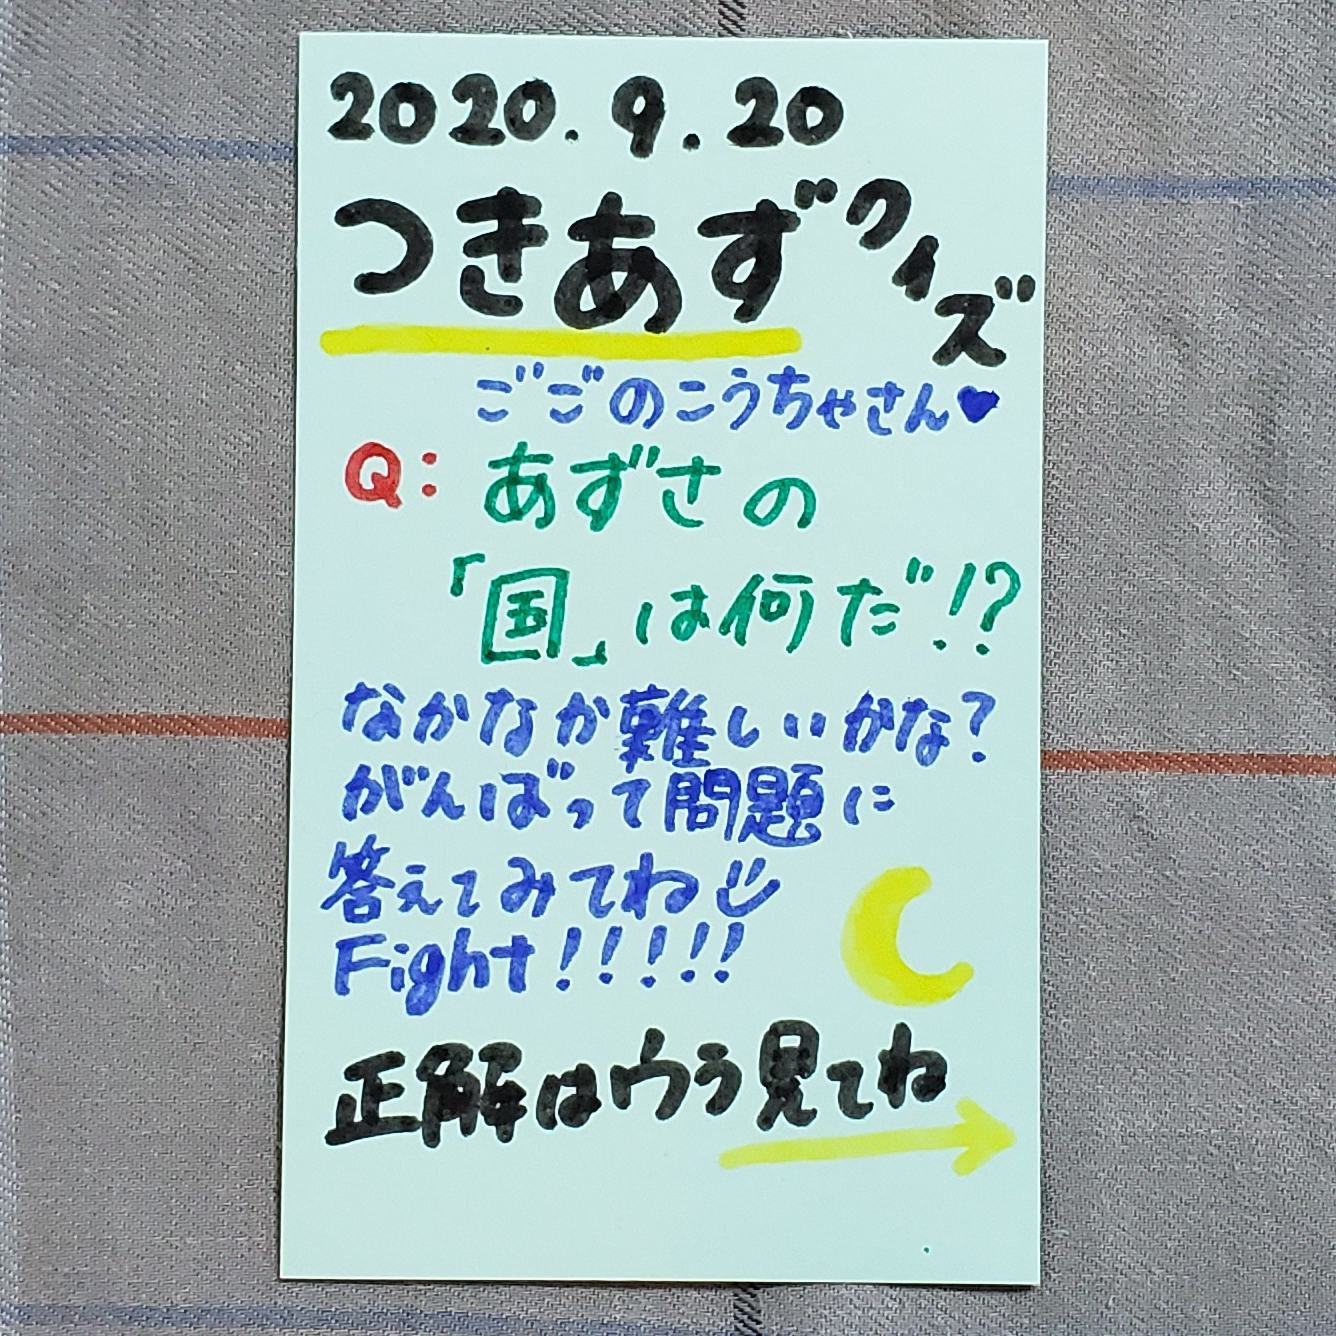 2020.9.20
つきあずクイズ
ごごのこうちゃさん♥
Q: あずさの
「国」は何だ!?
なかなか難しいかな?
がんばって問題に
答えてみてね
Fight!!!!!
正解はウラ見てね